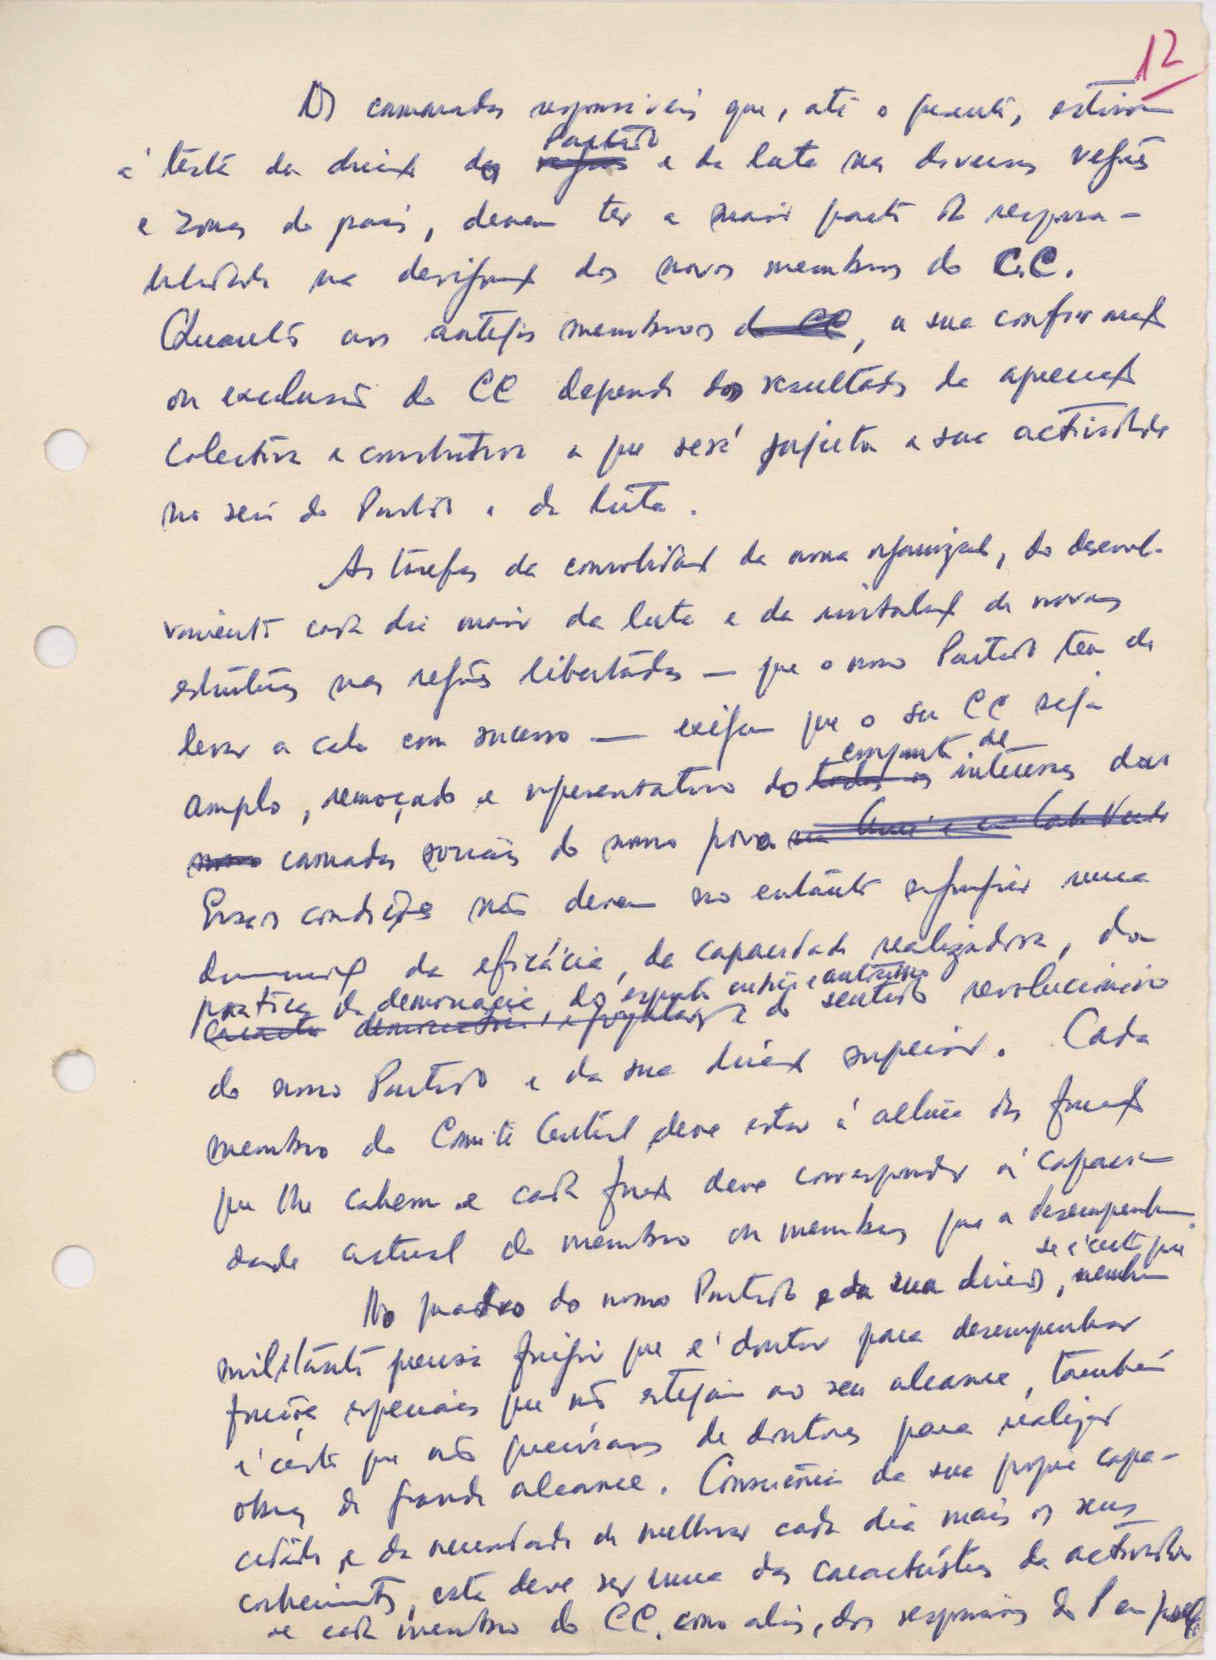 12
Os camaradas responsáveis que, até o presente, estiveram
à testa da direcção do Partido e da luta nas diversas regiões
e zonas do país, devem ter a maior parte da responsa-
bilidade na designação dos novos membros do CC.
Quanto aos antigos membros do CC, a sua confirmação
ou exclusão do CC depende dos resultados da apreciação
colectiva e construtiva a que será sujeita a sua actividade
no seio do Partido e da luta.
As tarefas da consolidação da nossa organização, do desenvol-
vimento cada dia maior da luta e da instalação de novas
estruturas nas regiões libertadas — que o nosso Partido tem de
levar a cabo com sucesso — exigem que o seu CC seja
conjunto de
amplo, remoçado e representativo do todos os interesses das
camadas sociais do nosso povo na Guiné e em Cabo Verde
Essas condições não devem no entanto significar uma
diminuição da eficácia, da capacidade realizadora, da
prática da democracia, do espírito
e do sentido revolucionário
do nosso Partido e da sua direcção superior. Cada
membro do Comité Central deve estar à altura das funções
que lhe cabem e cada função deve corresponder à capaci-
dade actual do membro ou membros que a desempenham.
se é certo que
No quadro do nosso Partido e da sua direcção, nenhum
militante precisa fingir que é doutor para desempenhar
funções especiais que não estejam ao seu alcance, também
é certo que não precisamos de doutores para realizar
obras de grande alcance. Consciência da sua própria capa-
cidade e da necessidade de melhorar cada dia mais os seus
conhecimentos, esta deve ser uma das características da actividade
de cada membro do CC, como aliás, dos responsáveis do P em